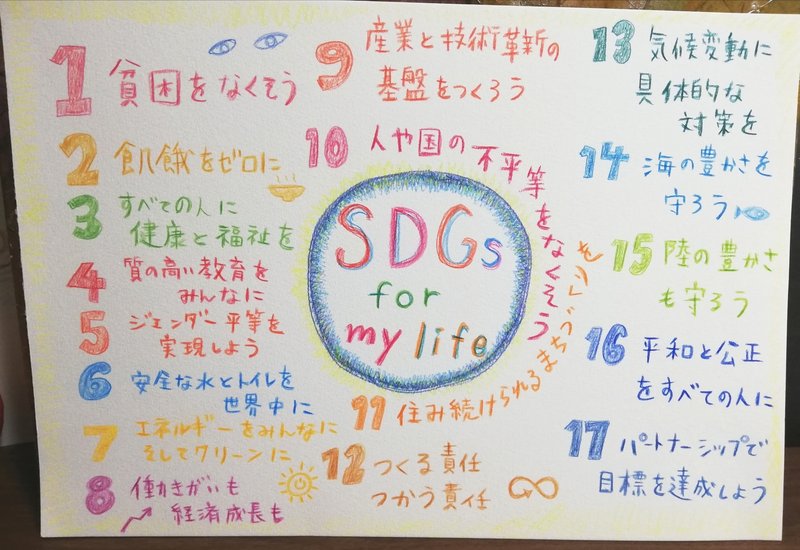 1 貧困をなくそう
2 飢餓をゼロに
3 すべての人に
健康と福祉を
4 質の高い教育を
みんなに
5 ジェンダー平等を
実現しよう
6 安全な水とトイレを
世界中に
7 エネルギーをみんなに
そしてクリーンに
8 働きがいも
経済成長も
9 産業と技術革新の
基盤をつくろう
10 人や国の不平等をなくそう
SDGs
for
my life
11 住み続けられるまちづくりを
12 つくる責任
つかう責任
13 気候変動に
具体的な
対策を
14 海の豊かさを
守ろう
15 陸の豊かさ
も守ろう
16 平和と公正
をすべての人に
17 パートナーシップで
目標を達成しよう